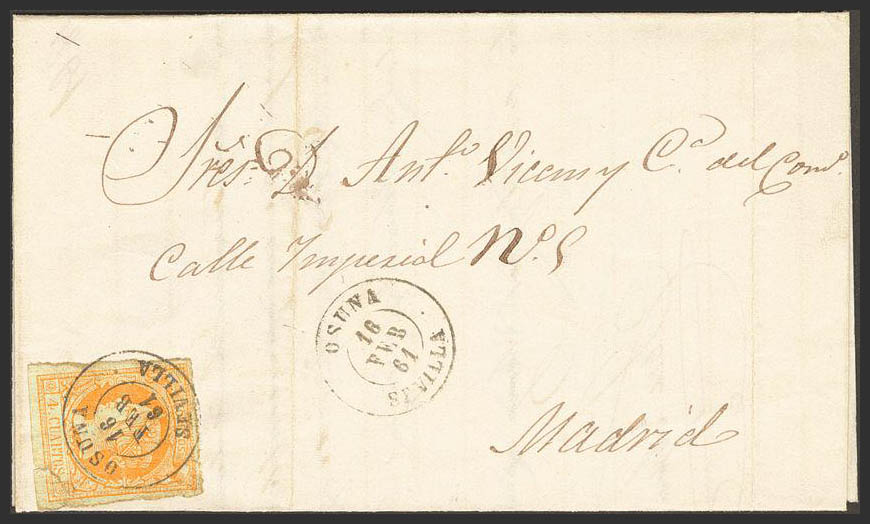 Sres D. Anto. Vicens y Ca. del Como.
Calle Imperial No. 5
OSUNA
16
FEB
61
SEVILLA
Madrid
OSUNA
16
FEB
61
SEVILLA
4 CUARTOS